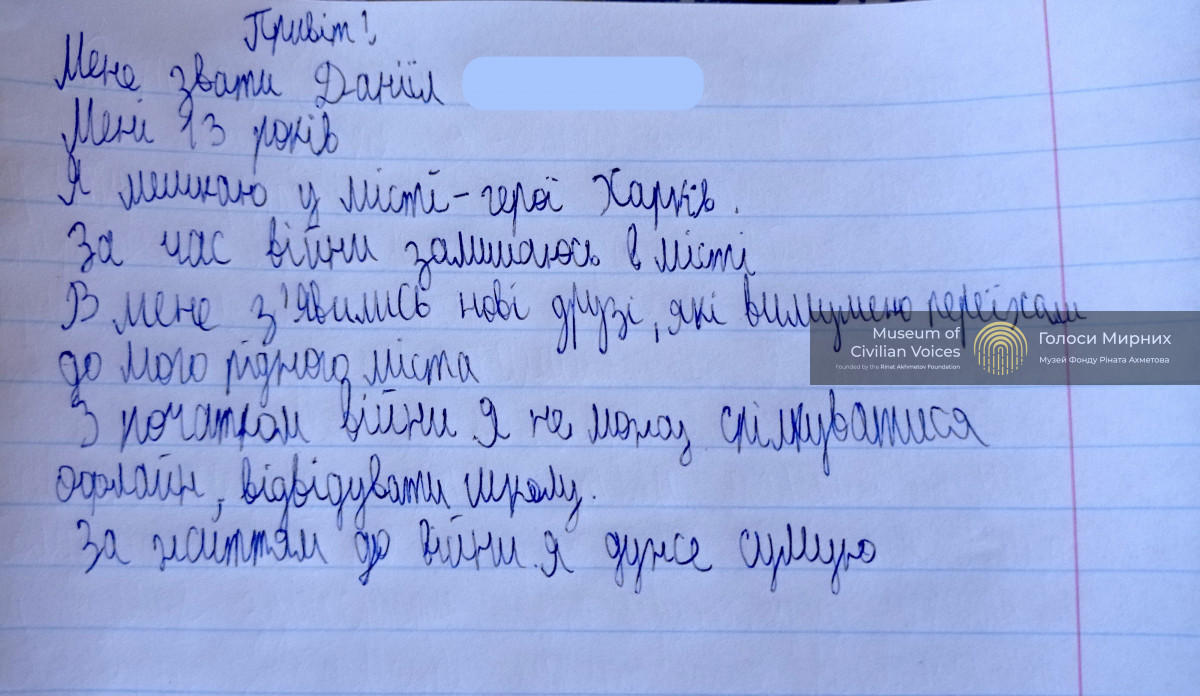 Привіт!
Мене звати Даніїл
Мені 13 років
Я мешкаю у місті-герої Харків.
За час війни залишаюсь в місті
В мене з'явились нові друзі, які вимушено переїхали
до мого рідного міста
З початком війни я не можу спілкуватися
офлайн, відвідувати школу.
За життям до війни я дуже сумую
Museum of
Civilian Voices
Founded by the Rinat Akhmetov Foundation
Голоси Мирних
Музей Фонду Ріната Ахметова